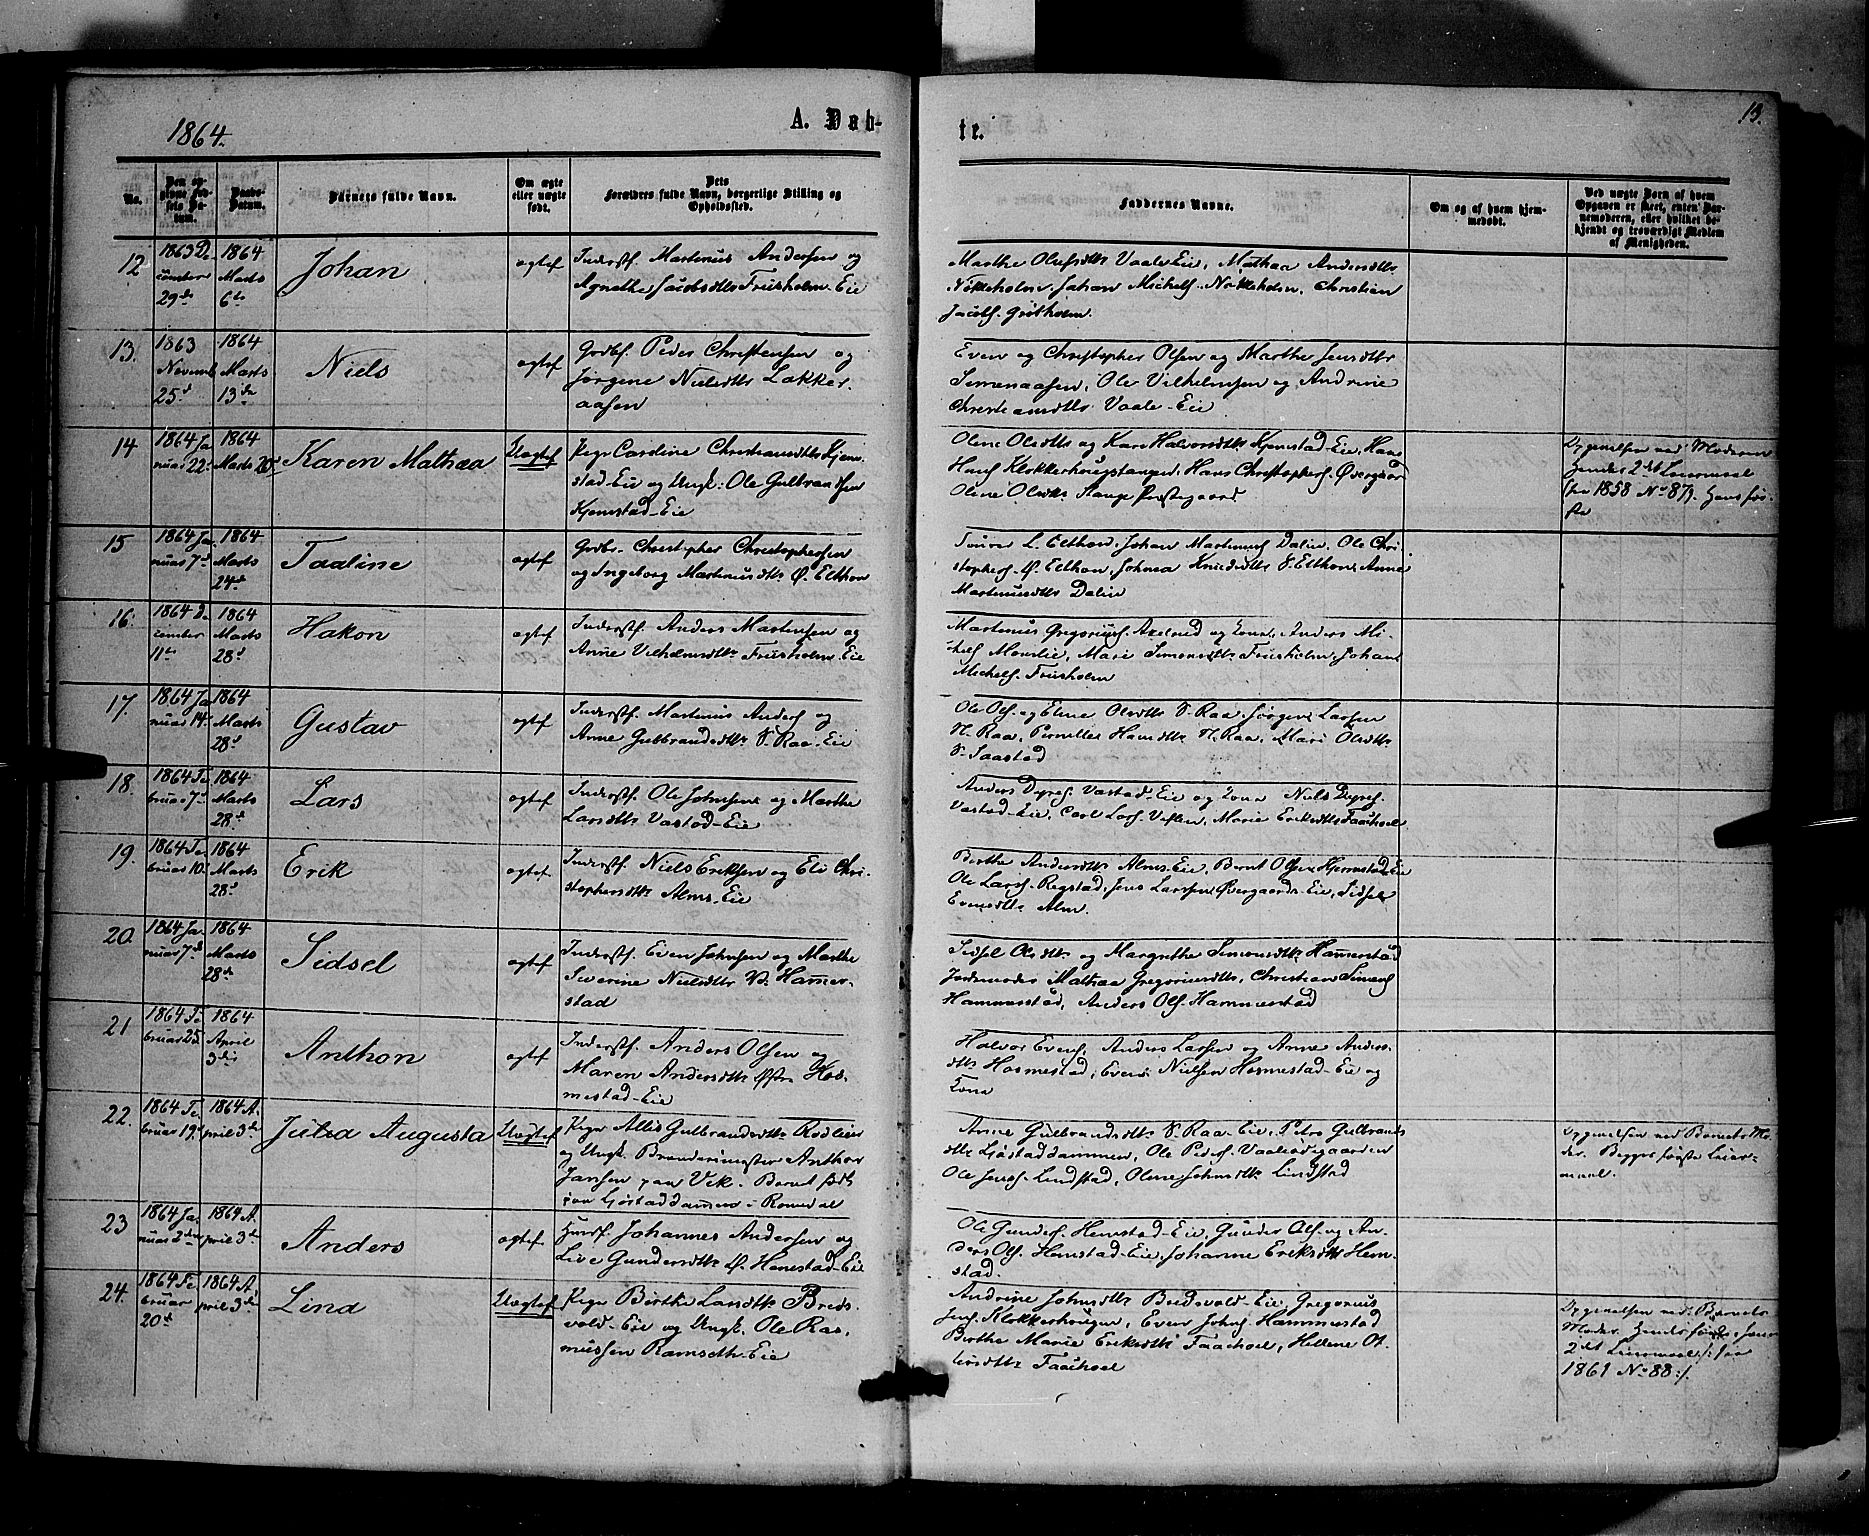 1864.
A. Døb-
te.
13.
No.
Den opgivne Fødsels Datum.
Daabs-Datum.
Barnets fulde Navn.
Om ægte eller uægte født.
Dets Forældres fulde Navn, borgerlige Stilling og Opholdssted.
Faddernes Navne.
Om og af hvem hjemmedøbt.
Ved uægte Børn af hvem Opgaven er skeet, enten Barnemoderen, eller hvilket bekjendt og troværdigt Medlem af Menigheden.
12
1863 De-
cember
29de
1864
Marts
6te
Johan
ægtef
Inderstf. Martinus Andersen og
Agnethe Jacobsdttr Friisholm-Eie
Marthe Olufsdttr Vaale-Eie, Mathea Andersdttr
Nökleholm, Johan Michels. Nökleholm, Christian
Jacobs. Grötholm.
13.
1863
Novemb
25d
1864
Marts
13de
Niels
ægtef
Grdbf. Peder Christensen og
Jørgene Nielsdttr Lakker-
aasen
Even og Christopher Olsen og Marthe Jensdttr
Simenaasen, Ole Vilhelmsen og Andrine
Christiansdttr Vaale-Eie
14
1864 Ja-
nuar 22d
1864
Marts 20d
Karen Mathea
Uægtef
Pige Caroline Christiansdttr Kjem-
stad-Eie og Ungk: Ole Gulbrandsen
Kjemstad-Eie
Olene Olsdttr og Kari Halvorsdttr Kjemstad-Eie, Hans
Hans. Klokkerhougstangen, Hans Christophers. Övergaard
Olene Olsdttr Stange Præstegaard
Opgivelsen ved Moderen
Hendes 2det Leiermaal
(fra 1858 No 87). Hans før-
ste
15
1864 Ja-
nuar 7d
1864
Marts
24d
Taaline
ægtef
Grdbr. Christopher Christophersen
og Ingeborg Martinusdttr Ø. Elthon
L. Elthon, Johan Martinus. Dalin, Ole Chri-
stophers. Ø. Elthon, Johna Knudsdttr S. Elthon, Anne
Martinusdttr Dalin
16.
1864 De-
cember
11te
1864
Marts
28d
Hakon
ægtef
Inderstf. Anders Martinsen og
Anne Vilhelmsdttr Friisholm-Eie
Martinus Gregorius. Axelrud og Kona, Anders Mi-
chels. Monslie, Mari Simensdttr Friisholm, Johan
Michels. Friisholm
17.
1864 Ja-
nuar 14d
1864
Marts
28d
Gustav
ægtef
Inderstf. Martinus Anders. og
Anne Gulbrandsdttr S. Raa-Eie
Ole Ols. og Eline Olsdttr S. Raa, Jørgen Larsen
N. Raa, Pernille Hansdttr N. Raa, Mari Olsdttr
S. Saastad
18.
1864 Fe-
bruar 7d
1864
Marts
28d
Lars
ægtef
Inderstf. Ole Johnsen og Marthe
Larsdttr Vastad-Eie
Anders Dyres. Vastad-Eie og Kona, Niels Dyres.
Vastad-Eie, Carl Lars. Veflen, Marie Eriksdttr Faachoel
19.
1864 Fe-
bruar 10d
1864
Marts
28d
Erik
ægtef
Inderstf. Niels Eriksen og Eli Chri-
stophersdttr Alms-Eie
Berthe Andersdttr Alms-Eie, Bernt Olsen Hjemstad-Eie
Ole Lars. Rogstad, Jens Larsen Övergaards-Eie, Sidsel
Evensdttr Alm.
20.
1864 Ja-
nuar 7d
1864
Marts
28de
Sidsel
ægtef
Inderstf. Even Johnsen og Marthe
Severine Nielsdttr V. Hamer-
stad
Sidsel Olsdttr og Margrethe Simonsdttr Hammerstad
Jordemoder Mathea Gregoriusdttr, Christian Simens.
Hammerstad, Anders Ols. Hammerstad
21
1864 Fe-
bruar 25d
1864
April
3die
Anthon
ægtef
Inderstf. Anders Olsen og
Maren Andersdttr Østr. Hos-
mestad-Eie
Halvor Evens., Anders Larsen og Anne Anders-
dttr Hosmestad, Even Nielsen Hosmestad-Eie og
Kona
22.
1864 Fe-
bruar 19d
1864 A-
pril 3de
Julia Augusta
Uægtef
Pige Allis Gulbrandsdttr Rødlien
og Ungk. Brænderimester Anthon
Jansen paa Vik. Barnet født
paa Ljøstaddammen i Romedal
Anne Gulbrandsdttr S. Raa-Eie, Petra Gulbrands
dttr Ljøstaddammen, Ole Peders. Vaaleødegaarden
Ole Jens. Lindstad, Olene Johnsdttr Lindstad
Opgivelsen ved Barnets Mo-
der. Begges første Leier-
maal.
23
1864 Ja-
nuar 2den
1864 A-
pril 3de
Anders
ægtef
Husf. Johannes Andersen og
Live Gundersdttr Ø. Hemstad-Eie
Ole Gunders. Hemstad-Eie, Gunder Ols. og An-
ders Ols. Hemstad-Eie, Johanne Eriksdttr Hem-
stad.
24.
1864 Fe-
bruar
20d
1864 A-
pril 3de
Lina
Uægtef
Pige Birthe Larsdttr Breds-
vold-Eie og Ungk. Ole Ras-
mussen Ramseth-Eie
Andrine Johnsdttr Bredsvold-Eie, Gregorius
Jens. Klokkerhougen, Even Johns. Hammerstad
Berthe Marie Eriksdttr Faachoel, Hellene Ot-
tersdttr Faachoel
Opgivelsen ved Barnets
Moder. Hendes første, hans
2det Leiermaal /: fra
1861 No 88 :/.